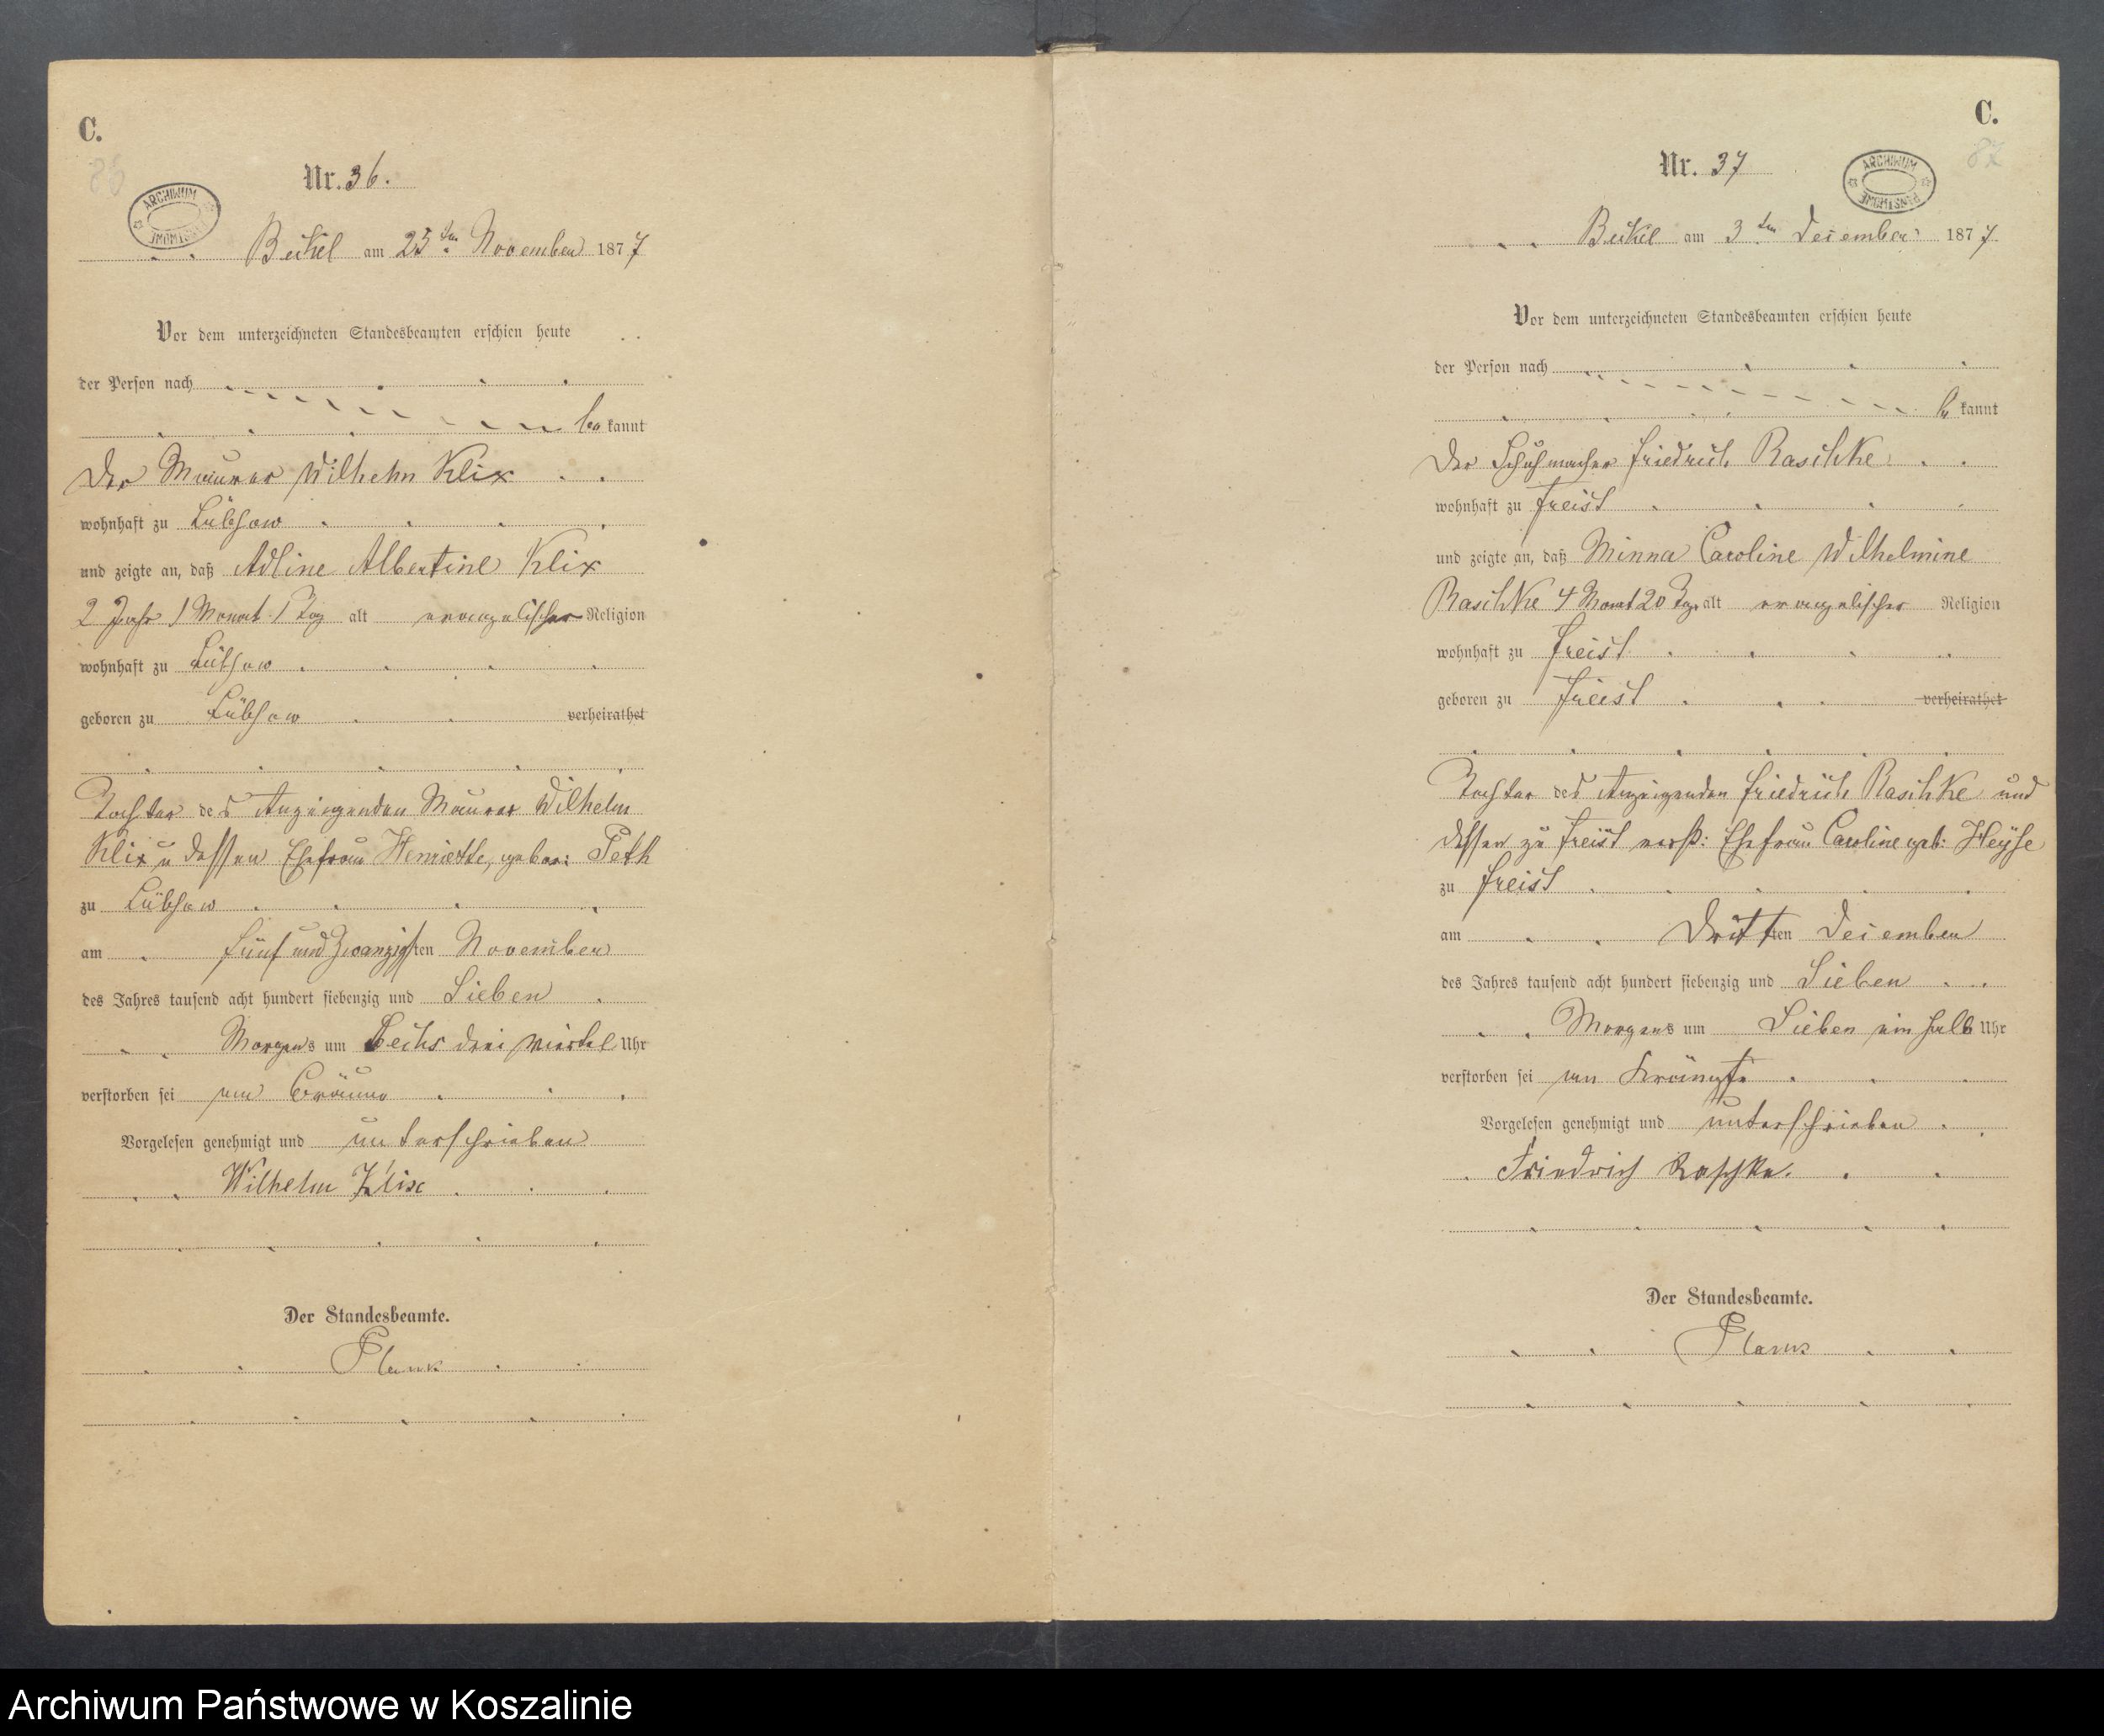 C.
86
Nr. 36.
ARCHIWUM PAŃSTWOWE
Beckel am 25ten November 1877
Vor dem unterzeichneten Standesbeamten erschien heute
der Person nach
bekannt
Der Maurer Wilhelm Klix
wohnhaft zu Lübsow
und zeigte an, daß Adline Albertine Klix
2 Jahr 1 Monat 1 Tag alt evangelischer Religion
wohnhaft zu Lübsow
geboren zu Lübsow verheirathet
Tochter des Anzeigenden Maurer Wilhelm
Klix u dessen Ehefrau Henriette, gebor: Peth
zu Lübsow
am fünf und zwanzigsten November
des Jahres tausend acht hundert siebenzig und Sieben
Morgens um Sechs drei viertel Uhr
verstorben sei an Bräune
Vorgelesen genehmigt und unterschrieben
Wilhelm Klix
Der Standesbeamte.
Plank
C.
87
Nr. 37
ARCHIWUM PAŃSTWOWE
Beckel am 3ten December 1877
Vor dem unterzeichneten Standesbeamten erschien heute
der Person nach
bekannt
Der Schuhmacher Friedrich Raschke
wohnhaft zu Freist
und zeigte an, daß Minna Caroline Wilhelmine
Raschke 4 Monat 20 Tage alt evangelischer Religion
wohnhaft zu Freist
geboren zu Freist verheirathet
Tochter des Anzeigenden Friedrich Raschke und
dessen zu Freist verst: Ehefrau Caroline geb: Heyse
zu Freist
am Dritten December
des Jahres tausend acht hundert siebenzig und Sieben
Morgens um Sieben ein halb Uhr
verstorben sei an Krämpfe
Vorgelesen genehmigt und unterschrieben
Friedrich Raschke.
Der Standesbeamte.
Plank
Archiwum Państwowe w Koszalinie